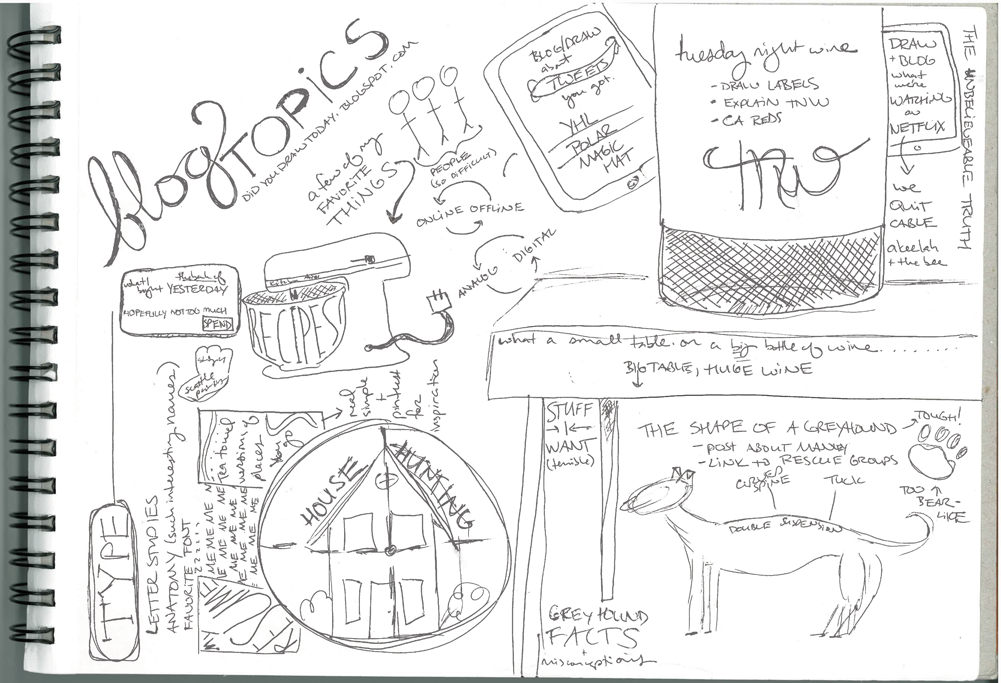 blog?
TOPICS
DID YOU DRAW TODAY.BLOGSPOT.COM
a few of my
FAVORITE
THINGS
PEOPLE
(SO DIFFICULT)
ONLINE OFFLINE
ANALOG DIGITAL
BLOG/DRAW
about
TWEETS
you got.
YHL
POLAR
MAGIC
HAT
tuesday night wine
- DRAW LABELS
- EXPLAIN TNW
- CA REDS
TNW
DRAW
+ BLOG
what
we're
WATCHING
on
NETFLIX
we
QUIT
CABLE
akeelah
+ the bee
THE UNBELIEVEABLE TRUTH
what I the bank of
might YESTERDAY
HOPEFULLY NOT TOO much
SPEND
RECIPES
real
simple
+
pinterest
for
inspiration
what a small table. or a big bottle of wine........
BIG TABLE, HUGE WINE
STUFF
WANT
(terrible)
THE SHAPE OF A GREYHOUND
- POST ABOUT MANNY
- LINK TO RESCUE GROUPS
CURVED
SPINE
TUCK
DOUBLE SUSPENSION
TOUGH!
TOO
BEAR-
LIKE
GREYHOUND
FACTS
+
misconceptions
HOUSE HUNTING
TYPE
LETTER STUDIES
ANATOMY (such interesting names)
FAVORITE FONT
ME ME ME ME
ME ME ME ME
ME ME ME ME
ME ME ME ME
versions of
places
You go